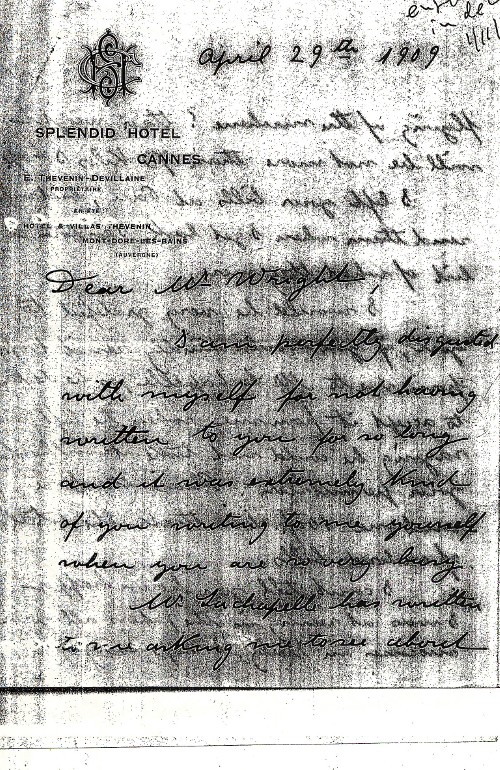 April 29th 1909
SPLENDID HOTEL
CANNES
E. THEVENIN-DEVILLAINE
PROPRIÉTAIRE
EN ÉTÉ
HOTEL & VILLAS THEVENIN
MONT-DORE-LES-BAINS
(AUVERGNE)
Dear Mr Wright,
I am perfectly disgusted
with myself for not having
written to you for so long
and it was extremely kind
of you writing to me yourself
when you are so very busy.
Mr has written
to me asking me to see about